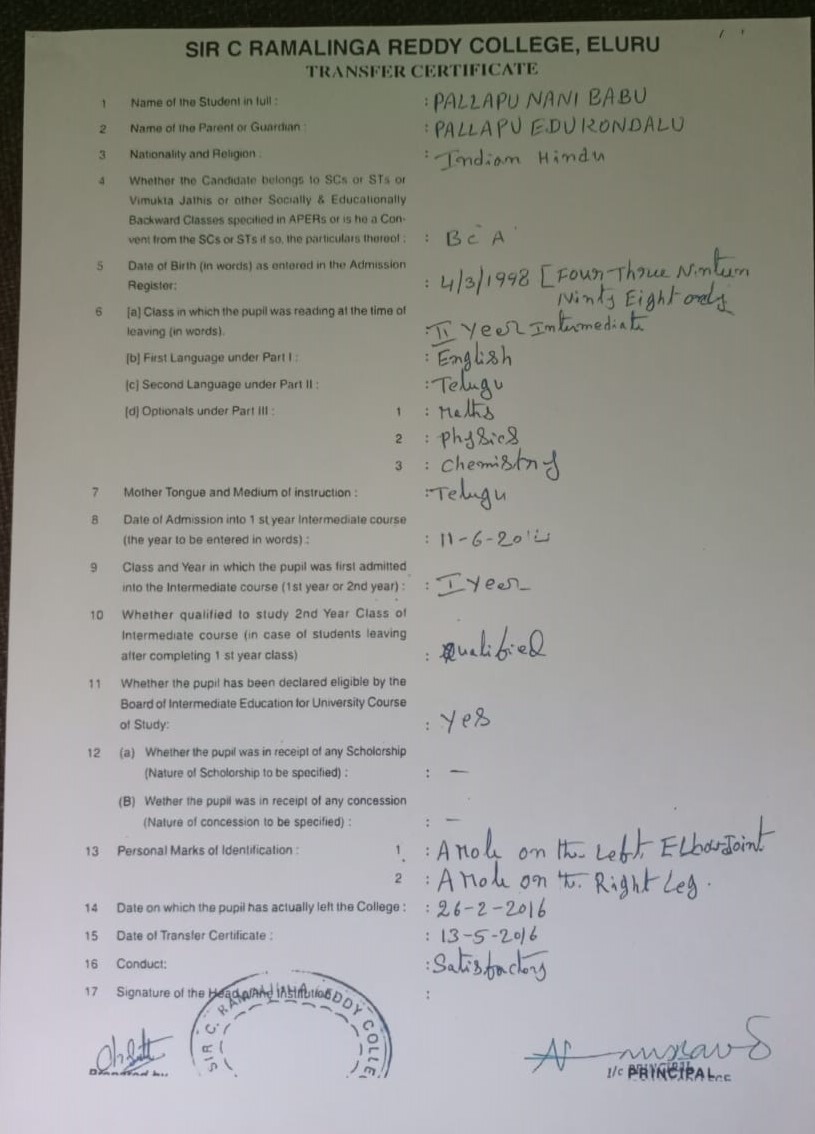 SIR C RAMALINGA REDDY COLLEGE, ELURU
TRANSFER CERTIFICATE
1 Name of the Student in full : : PALLAPU NANI BABU
2 Name of the Parent or Guardian : : PALLAPU EDUKONDALU
3 Nationality and Religion : : Indian Hindu
4 Whether the Candidate belongs to SCs or STs or
Vimukta Jathis or other Socially & Educationally
Backward Classes specified in APERs or is he a Con-
vent from the SCs or STs if so, the particulars thereof : : BC A
5 Date of Birth (in words) as entered in the Admission
Register: : 4/3/1998 [Four Three Ninteen
Ninty Eight only
6 [a] Class in which the pupil was reading at the time of
leaving (in words). : II Year Intermediate
[b] First Language under Part I : : English
[c] Second Language under Part II : : Telugu
[d] Optionals under Part III : 1 : Maths
2 : Physics
3 : Chemistry
7 Mother Tongue and Medium of instruction : : Telugu
8 Date of Admission into 1 st year Intermediate course
(the year to be entered in words) : : 11-6-20
9 Class and Year in which the pupil was first admitted
into the Intermediate course (1st year or 2nd year) : : I Year
10 Whether qualified to study 2nd Year Class of
Intermediate course (in case of students leaving
after completing 1 st year class) : Qualified
11 Whether the pupil has been declared eligible by the
Board of Intermediate Education for University Course
of Study: : Yes
12 (a) Whether the pupil was in receipt of any Scholorship
(Nature of Scholorship to be specified) : : —
(B) Wether the pupil was in receipt of any concession
(Nature of concession to be specified) : : —
13 Personal Marks of Identification : 1 : A Mole on the Left Elbow Joint
2 : A Mole on the Right Leg.
14 Date on which the pupil has actually left the College : : 26-2-2016
15 Date of Transfer Certificate : : 13-5-2016
16 Conduct: : Satisfactory
17 Signature of the Head of the Institution :
SIR C. RAMALINGA REDDY COLLE
I/c PRINCIPAL